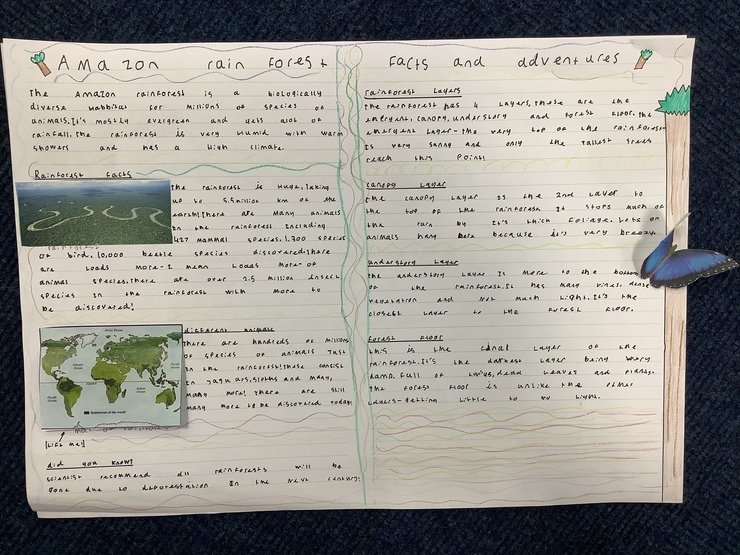 Amazon rain forest facts and adventures
The Amazon rainforest is a biologically
diverse habbitat for millions of species of
animals. It's mostly evergreen and gets alot of
rainfall. The rainforest is very humid with warm
showers and has a high climate.
Rainforest facts
The rainforest is huge, taking
up to 5.5 million km of the
earth! There are many animals
in the rainforest including
427 mammal species, 1,300 species
of bird, 10,000 beetle species discovered; there
are loads more - I mean loads more - of
animal species. There are over 2.5 million insect
species in the rainforest with more to
be discovered!
different animals
There are hundreds of millions
of species of animals just
in the rainforest! These consist
in jaguars, sloths and many,
many more! There are still
many more to be discovered today.
Rainforests of the world
[Lift me!]
did you know?
scientist recommend all rainforests will be
gone due to deforestation in the next century!
rainforest Layers
The rainforest has 4 layers, these are the
emergent, canopy, understory and forest floor. The
emergent layer - the very top of the rainforest
is very sunny and only the tallest trees
reach this point.
canopy layer
the canopy layer is the 2nd layer to
the top of the rainforest. It stops much of
the rain by it's thick foliage. Lots of
animals hang here because it's very breezy.
understory layer
the understory layer is more to the bottom
of the rainforest. It has many vines, dense
vegetation and not much light. It's the
closest layer to the forest floor.
forest floor
this is the final layer of the
rainforest. It's the darkest layer being very
damp. full of twigs, dead leaves and plants.
the forest floor is unlike the other
layers - getting little to no light.